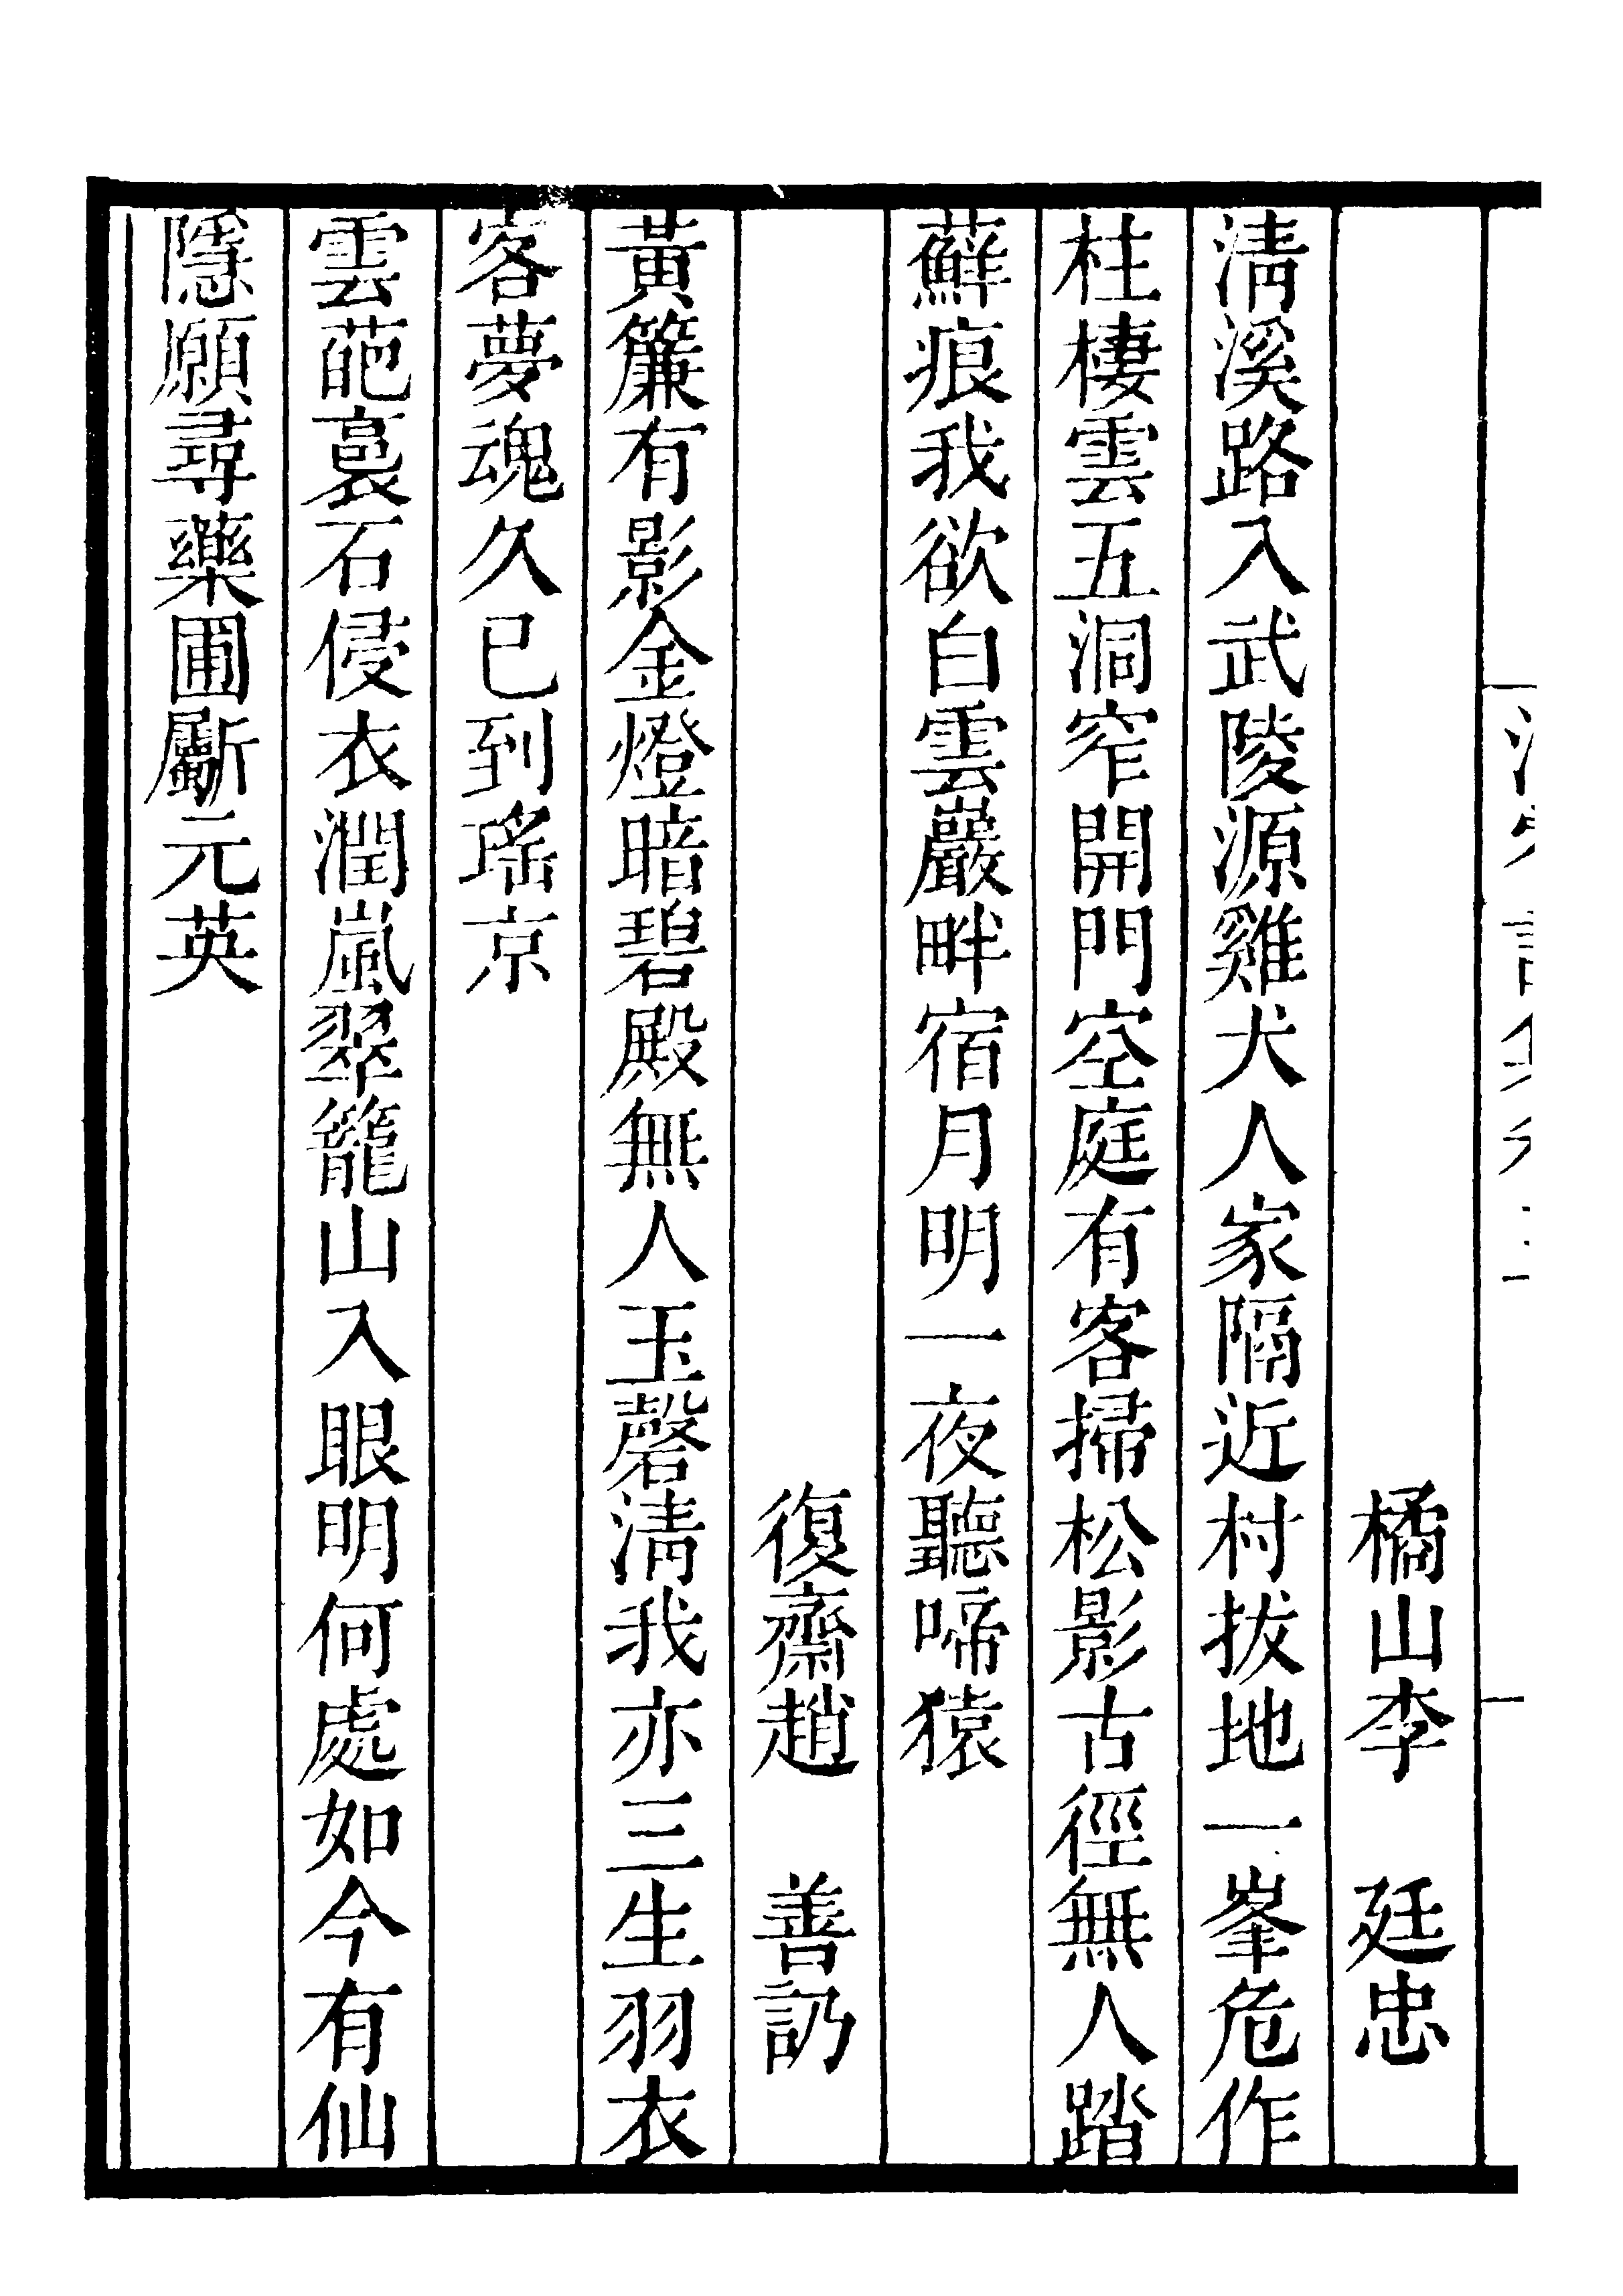 橘山李　廷忠
清溪路入武陵源雞犬人家隔近村拔地一峯危作
柱棲雲五洞窄開門空庭有客掃松影古徑無人踏
蘚痕我欲白雲巖畔宿月明一夜聽啼猿
復齋趙　善訒
黃簾有影金燈暗碧殿無人玉磬清我亦三生羽衣
客夢魂久已到瑤京
雲葩裹石侵衣潤嵐翠籠山入眼明何處如今有仙
隱願尋藥圃斸元英